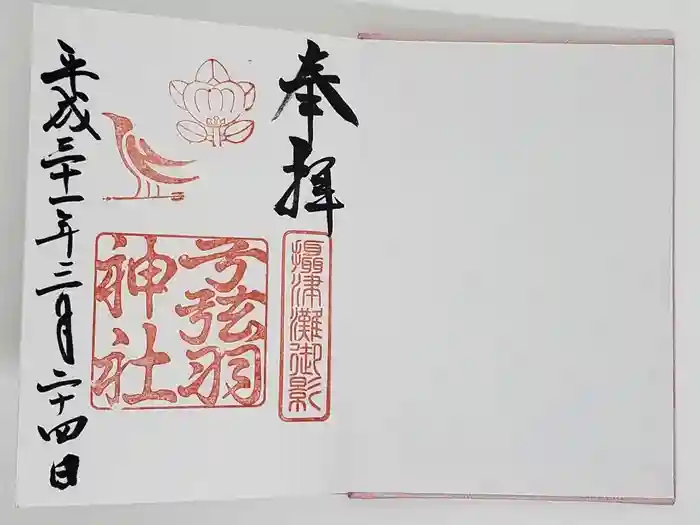 奉拝
摂津灘御影
弓弦羽
神社
平成三十一年三月二十四日